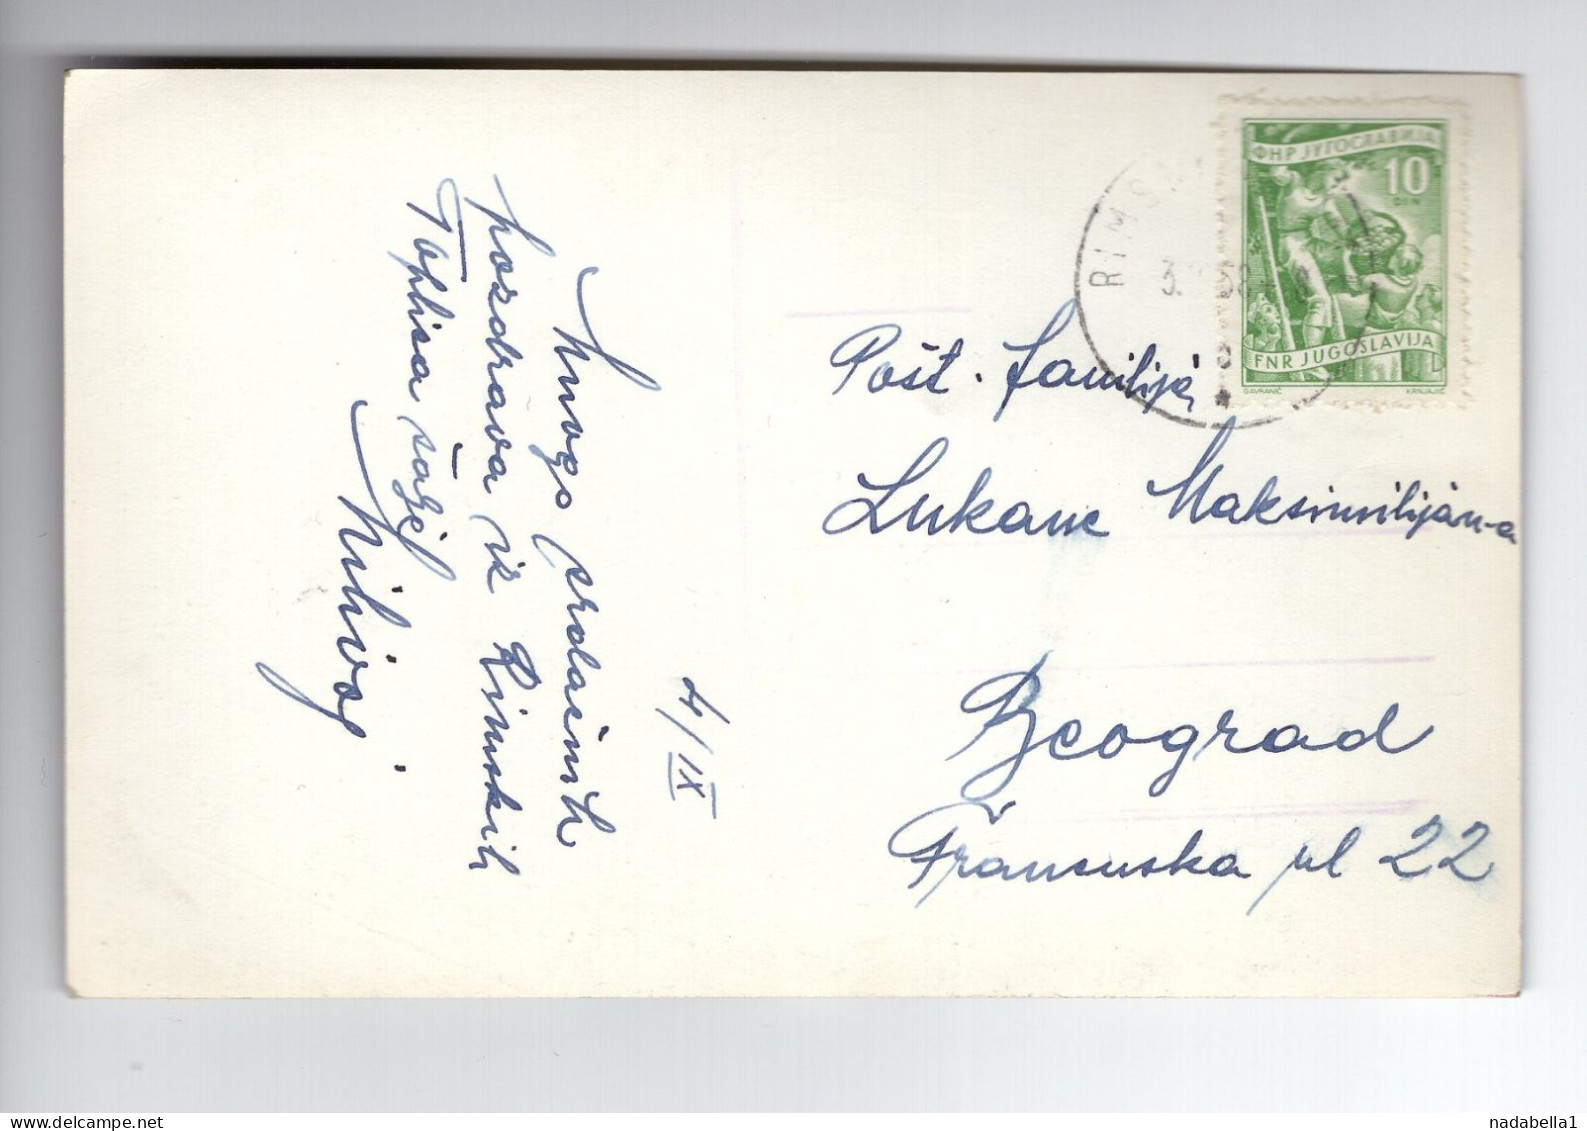 Mnogo srdačnih
pozdrava iz Rimskih
Toplica šalje
4/IX
RIMSK
ФНР ЈУГОСЛАВИЈА
10
DIN
FNR JUGOSLAVIJA
KRNJAJIĆ
Pošt. familija
Lukanc Maksimilijan-a
Beograd
Francuska ul 22
nadabella1